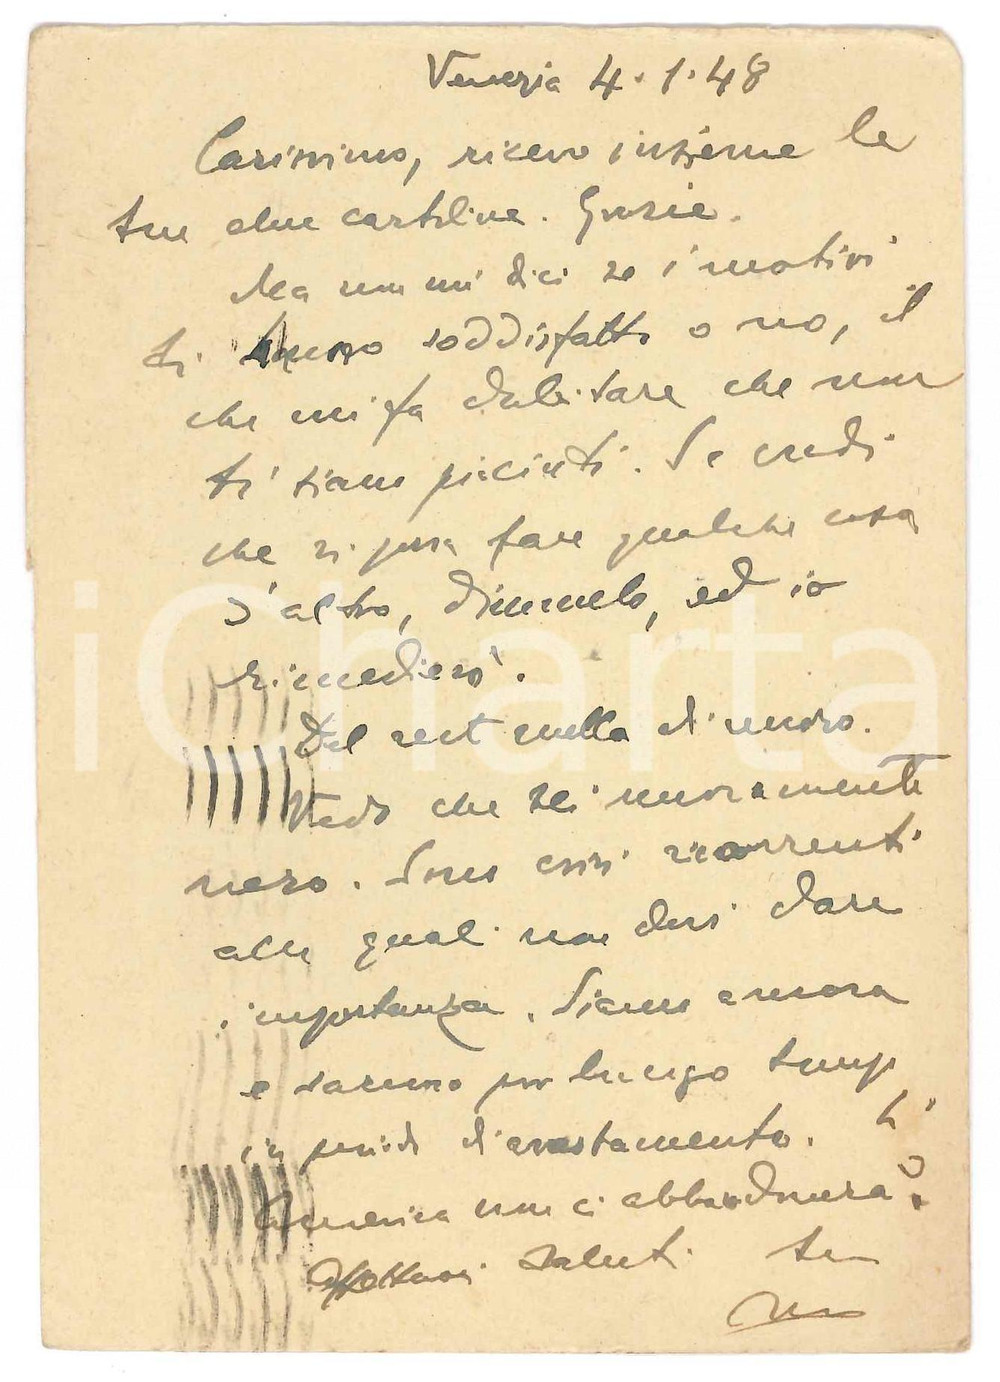 Venezia 4.1.48
Carissimo, ricevo insieme le
tue due cartoline. Grazie.
Ma non mi dici se i motivi
ti hanno soddisfatto o no, il
che mi fa dubitare che non
ti siano piaciuti. Se credi
che si possa fare qualche cosa
d'altro, dimmelo, ed io
rimedierò.
Del rest nulla di nuovo.
Vedo che sei nuovamente
nero. Sono crisi ricorrenti
alle quali non devi dare
importanza. Siamo ancora
e saremo per lungo tempo
in periodo d'assestamento. L'
America non ci abbandonerà?
Affettuosi saluti tuo
iCharta